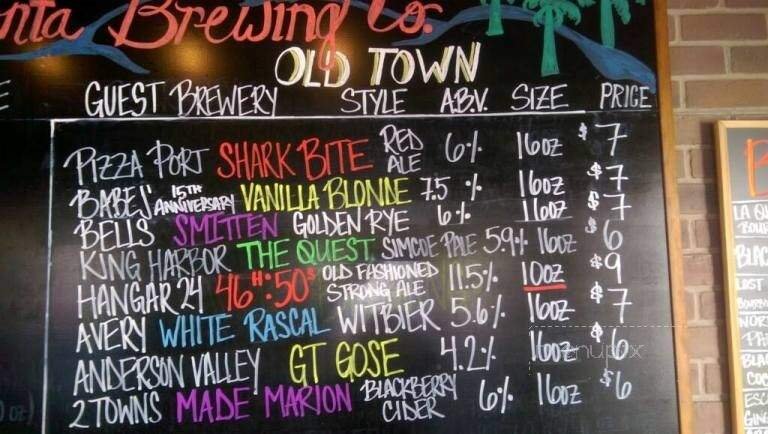 nta Brewing Co.
OLD TOWN
E GUEST BREWERY STYLE A.B.V. SIZE PRICE
PIZZA PORT SHARK BITE RED ALE 6% 16oz $7
BABES' 15TH ANNIVERSARY VANILLA BLONDE 7.5% 16oz $7
BELLS SMITTEN GOLDEN RYE 6% 16oz $7
KING HARBOR THE QUEST SIMCOE PALE 5.9% 16oz $6
HANGAR 24 46H:50S OLD FASHIONED STRONG ALE 11.5% 10oz $9
AVERY WHITE RASCAL WITBIER 5.6% 16oz $7
ANDERSON VALLEY GT GOSE 4.2% 16oz $6
2 TOWNS MADE MARION BLACKBERRY CIDER 6% 16oz $6
oz)
B
LA
BLAC
LOST
BLA
COC
ESC
GING